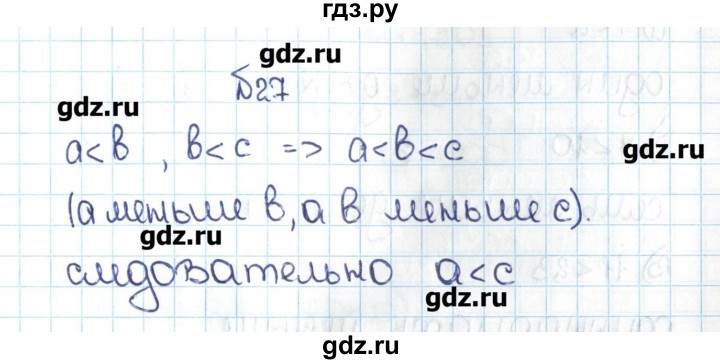 гдз.ру
gdz.ru
№27
gdz.ru
a<b, b<c => a<b<c
gdz.ru
(а меньше b, а b меньше с).
gdz.ru
следовательно a<c
gdz.ru
gdz.ru